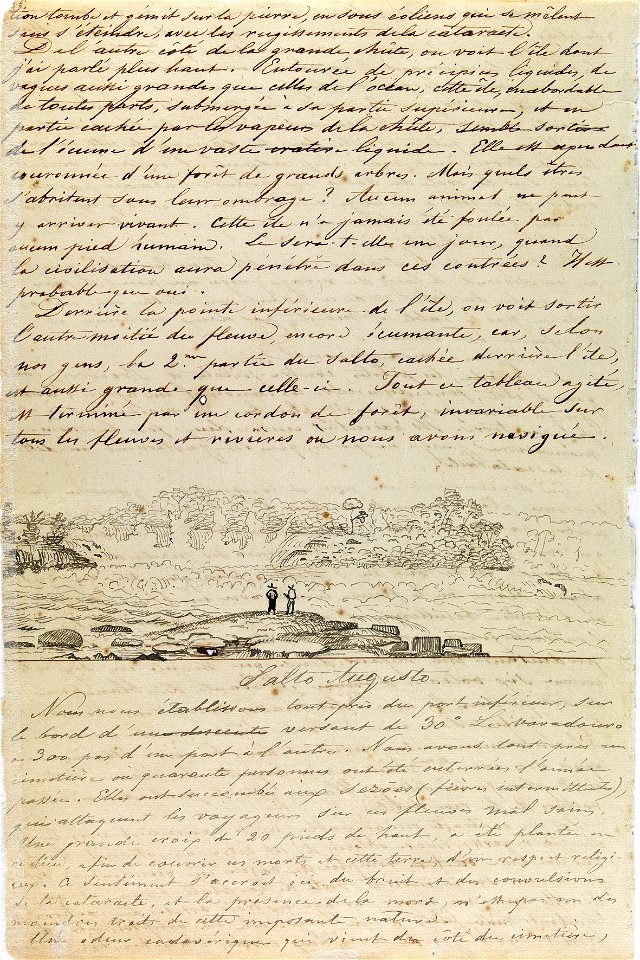 tion tombe et gémit sur la pierre, en sons éoliens qui se mêlent
sans s'étendre, avec les rugissements de la cataracte.
De l'autre côté de la grande chûte, on voit l'île dont
j'ai parlé plus haut. Entourée de précipices liquides, de
vagues aussi grandes que celles de l'océan, cette île, inabordable
de toutes parts, submergée a sa partie supérieure, et en
partie cachée par les vapeurs de la chûte, semble sortir
de l'écume d'un vaste cratère liquide. Elle est cependant
couronnée d'une forêt de grands arbres. Mais quels êtres
s'abritent sous leur ombrage? Aucun animal ne peut
y arriver vivant. Cette île n'a jamais été foulée par
aucun pied humain. Le sera-t-elle un jour, quand
la civilisation aura pénétré dans ces contrées? Il est
probable que oui.
Derrière la pointe inférieure de l'île, on voit sortir
l'autre moitiée du fleuve, encore écumante, car, selon
nos gens, la 2.me partie du Salto, cachée derrière l'île,
est aussi grande que celle-ci. Tout ce tableau agité,
est terminé par un cordon de forêt, invariable sur
tous les fleuves et rivières où nous avons navigué.
Salto Augusto.
Nous nous établissons tout près du port inférieur, sur
le bord d'un versant de 30°. Le varadouro
a 300 pas d'un port à l'autre. Nous avons tout près un
cimetière ou quarante personnes ont été enterrées l'année
passée. Elles ont succombé aux sezoes (fièvres intermittentes),
qui attaquent les voyageurs sur ces fleuves mal sains.
Une grande croix de 20 pieds de haut, a été plantée en
ce lieu, afin de couvrir ces morts et cette terre, d'un respect religi-
eux. Ce sentiment s'accroît ici du bruit et des convulsions
de la cataracte, et la présence de la mort, n'est pas un des
moindres traits de cette imposante nature.
Une odeur cadavérique qui vient du côté du cimetière,